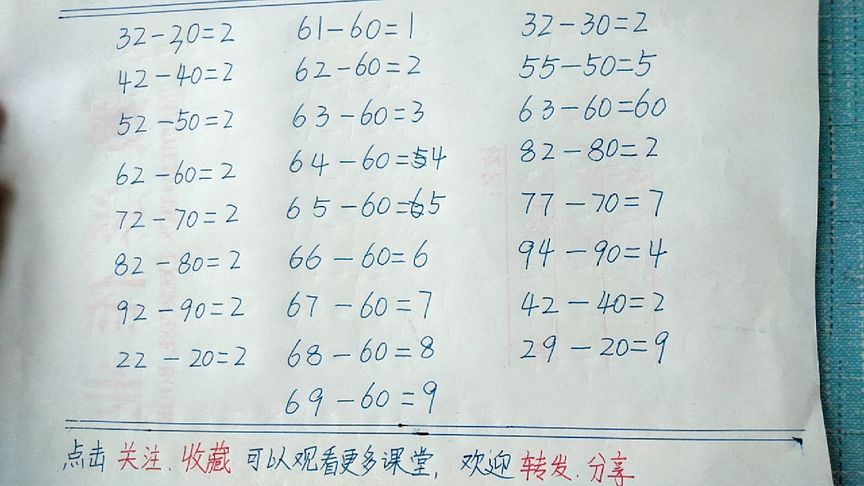 32-30=2 61-60=1 32-30=2
42-40=2 62-60=2 55-50=5
52-50=2 63-60=3 63-60=60
62-60=2 64-60=4 82-80=2
72-70=2 65-60=5 77-70=7
82-80=2 66-60=6 94-90=4
92-90=2 67-60=7 42-40=2
22-20=2 68-60=8 29-20=9
69-60=9
点击关注.收藏可以观看更多课堂,欢迎转发.分享